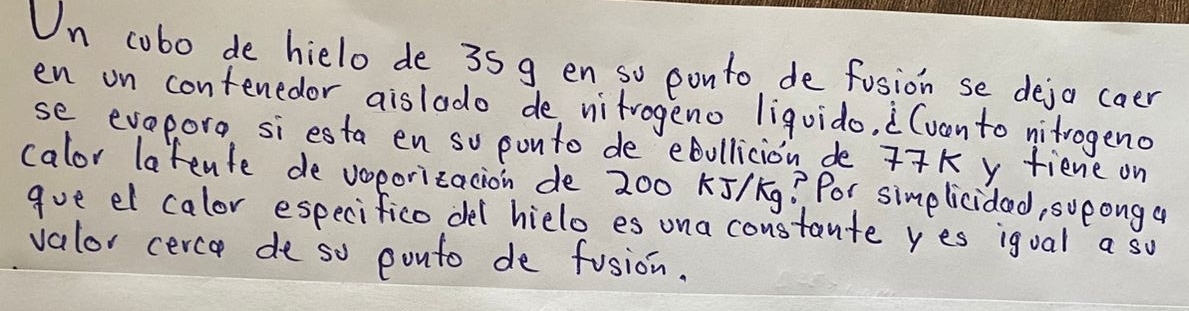 Un cubo de hielo de 35 g en su punto de fusión se deja caer
en un contenedor aislado de nitrogeno liquido. ¿Cuanto nitrogeno
se evapora si esta en su punto de ebullición de 77K y tiene un
calor latente de vaporización de 200 KJ/Kg? Por simplicidad, suponga
que el calor especifico del hielo es una constante y es igual a su
valor cerca de su punto de fusión.